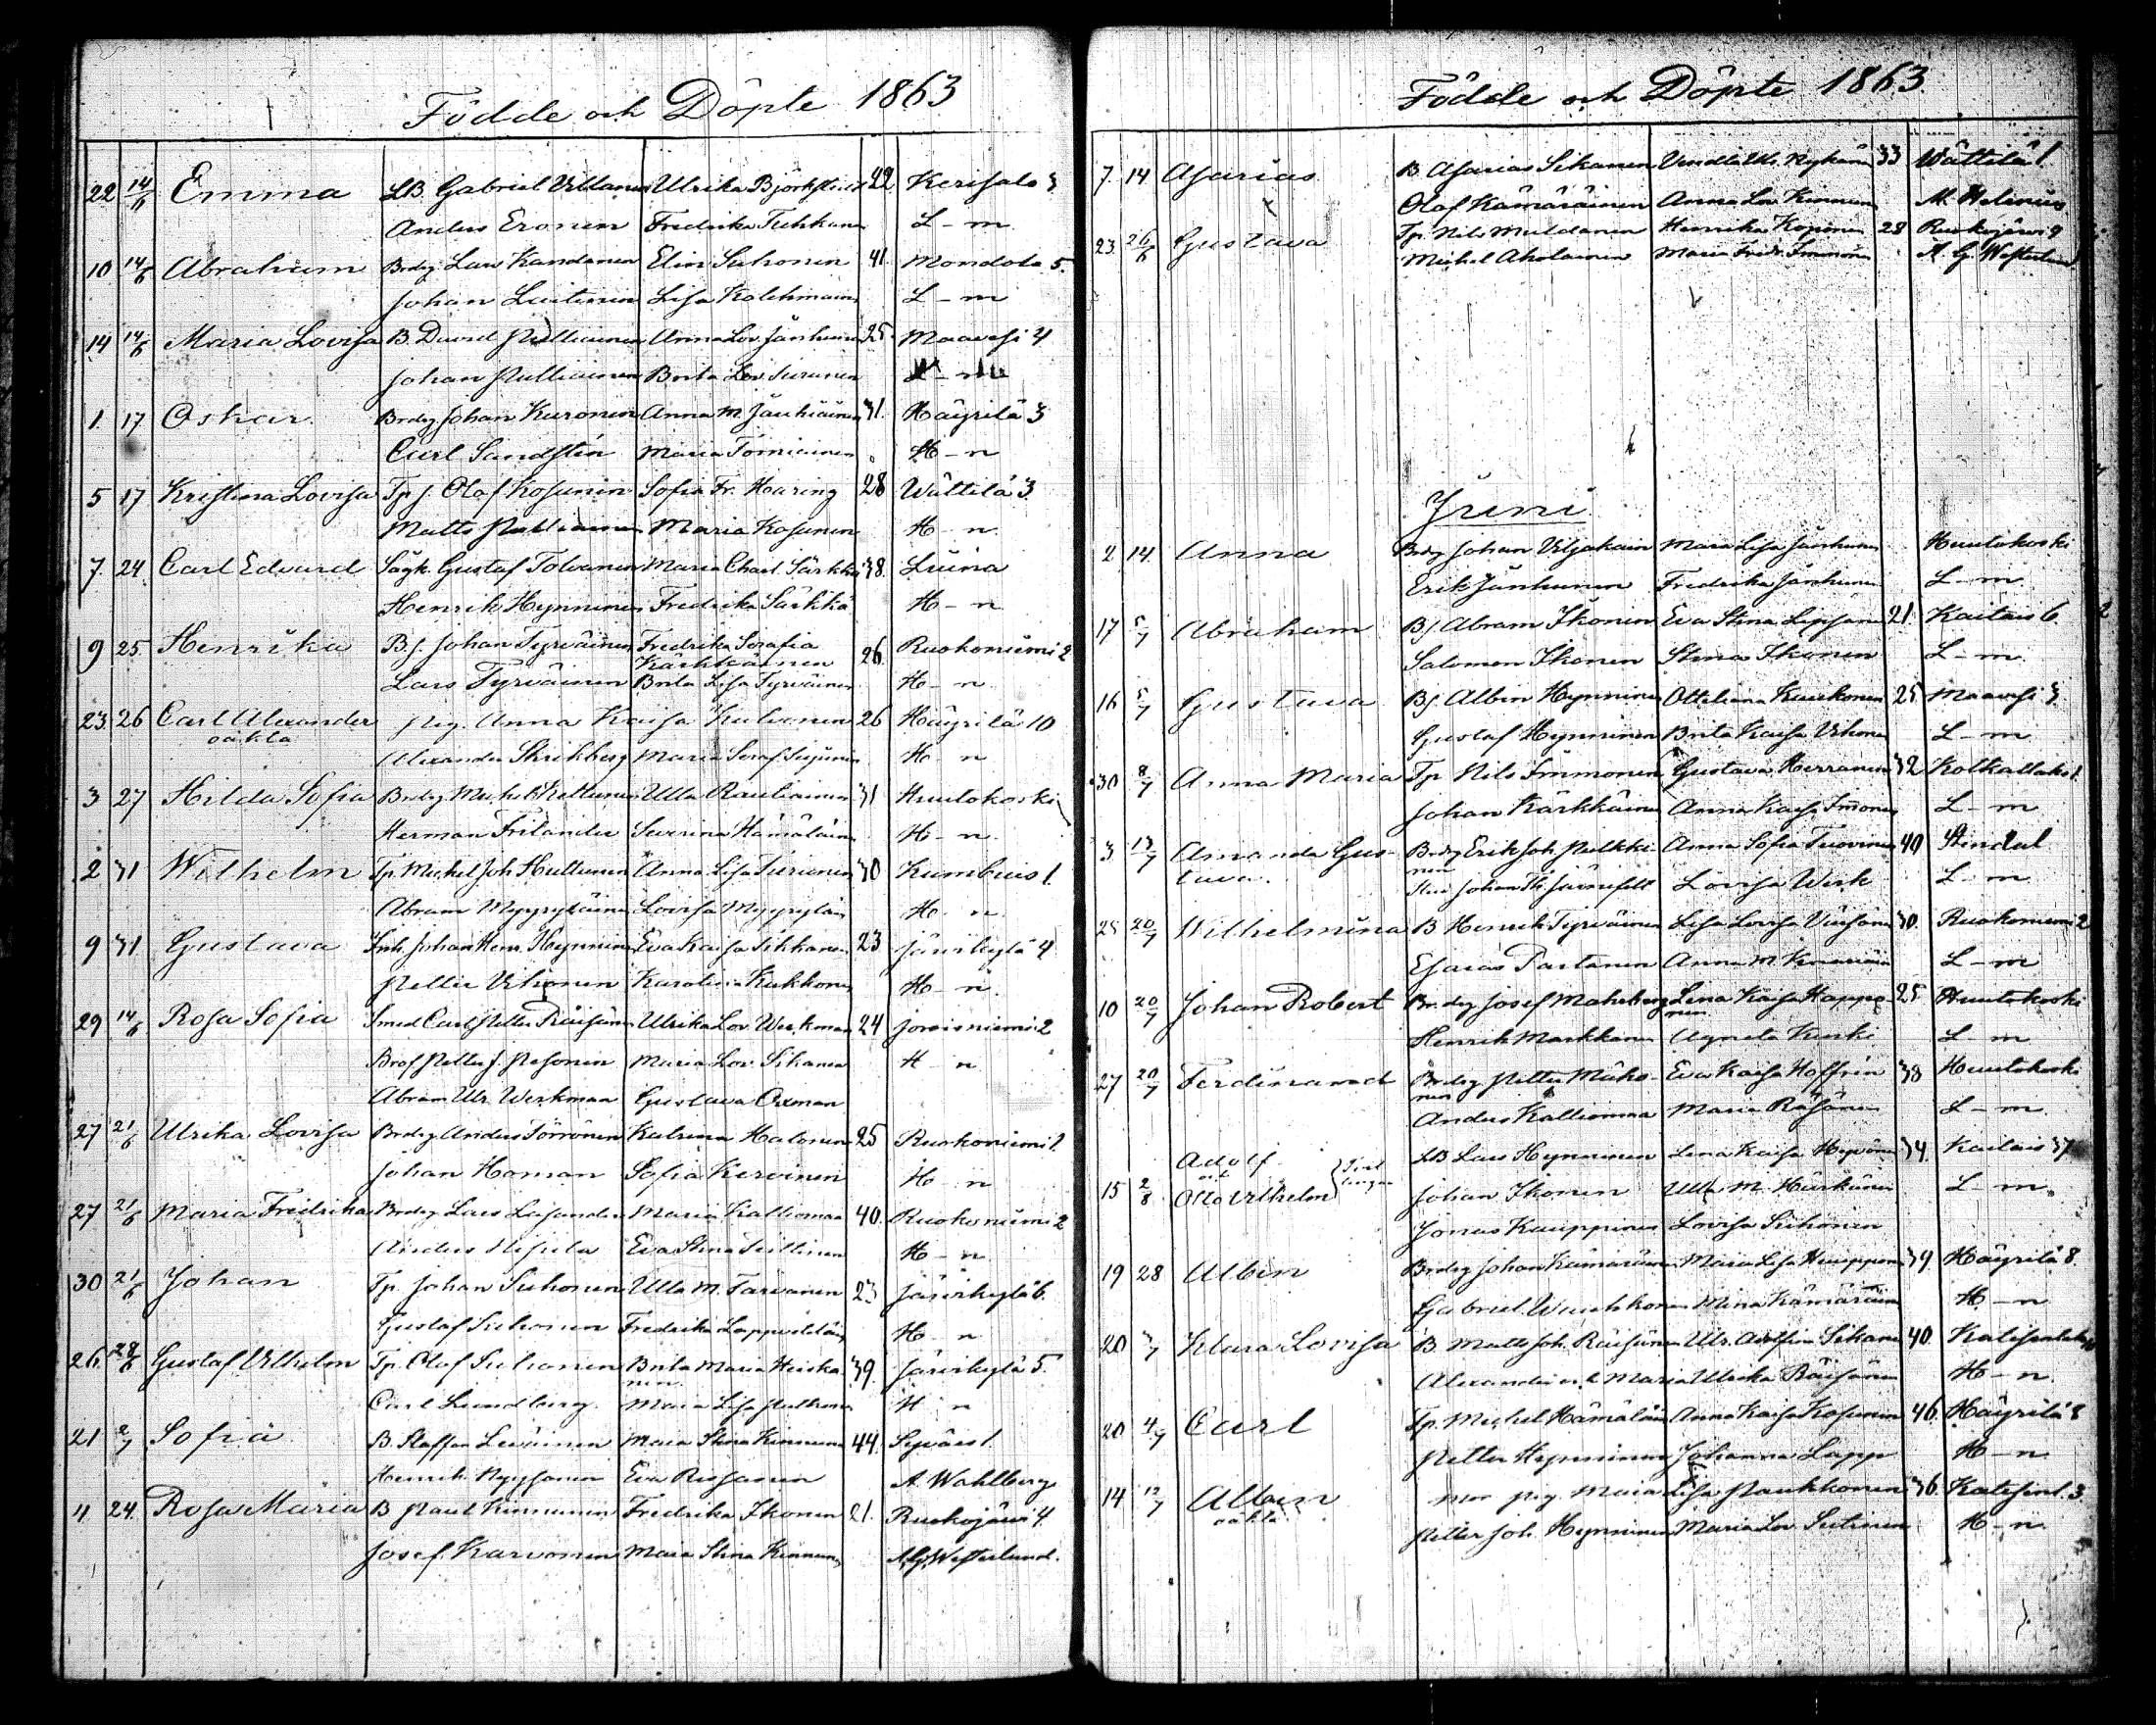 Födde och Döpte 1863
22 14/6 Emma LB. Gabriel Ulrika 22 Kerisalo 3
Anders Eronen Fredrika Tuhkanen L-m
10 14/6 Abraham Brdrg Lars Kandanen Elin Suhonen 41. Mondola 5.
Johan Luitinen Lisa Kolehmain L-m
14 14/6 Maria Lovisa B. David Pulliainen Anna Lov. Jänhunen 25. Maavesi 4
Johan Pulliainen Brita Lov. L-m
1. 17 Oskar Brdrg Johan Kuronen Anna M. Jäuhiäinen 31. Häyrilä 3
Carl Sandstén Maria Torniainen H-n
5 17 Kristina Lovisa Tp. s. Olof Kosunen Sofia Fr. Haring 28 Wättilä 3
Matts Pulliainen Maria Kosunen H-n
7. 24. Carl Edvard Sågk. Gustaf Tolvanen Maria Charl. Särkkä 38. Luina
Henrik Hynninen Fredrika Särkkä H-n
9 25. Henrika B.s. Johan Tyrväinen Fredrika Serafia Kärkkäinen 26. Ruokoniemi 2
Lars Tyrväinen Brita Lisa Tyrväinen H-n
23. 26 Carl Alexander oäkta Pig. Anna Kaisa 26 Häyrilä 10
Alexander Maria Seraf. H-n
3 27 Hilda Sofia Brdrg Michel Kettunen Ulla Rautiainen 31 Huutokoski
Herman Frilander Severina Hämäläin H-n
2 31 Wilhelm Tp. Michel Joh. Huttunen Anna Lisa 30 Kumbuis 1.
Abram Myyryläinen Lovisa Myyryläin H-n
9 31 Gustava Inh. Johan Henr. Hynninen Eva Kaisa Sikkanen 23 Järvikylä 4
Petter Vihonen Karolina Kukkonen H-n
29 14/6 Rosa Sofia Smed Carl Petter Räisänen Ulrika Lov. Werkman 24 Joroisniemi 2
Petter J. Pesonen Maria Lov. Sikanen H-n
Abram Ulr. Werkman Gustava Oxman
27 21/6 Ulrika Lovisa Brdrg Anders Törrönen Katrina Halonen 25 Ruokoniemi 1.
Johan Homan Sofia Kervinen H-n
27 21/6 Maria Fredrika Brdrg Lars Maria Kalliomaa 40. Ruokoniemi 2
Anders Eva Stina H-n
30 21/6 Johan Tp. Johan Suhonen Ulla M. Tarvanen 23 Järvikylä 6.
Gustaf Suhonen Fredrika H-n
26. 28/6 Gustaf Vilhelm Tp. Olof Suhonen Brita Maria 39. Järvikylä 5.
Carl Lundberg Maria Lisa H-n
21 2/7 Sofia B. Staffan Maria Stina Kinnunen 44. Syväis 1.
Henrik Nyyssönen Eva A. Wahlberg
4. 24. Rosa Maria B Paul Kinnunen Fredrika Ikonen 21. Ruokojärvi 4.
Josef Karvonen Maria Stina Kinnunen A.G. Westerlund.
Födde och Döpte 1863.
7. 14 Asarias B. Asarias Sikanen Vendla Ulr. 33 Wättilä 1.
Olof Kämäräinen Anna Lov. Kinnunen M. Helenius
23. 26/6 Gustava Tp. Nils Muldanen Henrika Koponen 28 Ruokojärvi 9
Michel Aholainen Maria Fredr. Immonen A. G. Westerlund
Juni
2. 14. Anna Brdrg Johan Viljakain Maria Lisa Jänhunen Huutokoski
Erik Jänhunen Fredrika Jänhunen L-m
17 5/7 Abraham Bs. Abram Ikonen Eva Stina 21. Kaitais 6.
Salomon Ikonen Stina Ikonen L-m
16 5/7 Gustava Bs. Albin Hynninen Ottiliana 25 Maavesi 3
Gustaf Hynninen Brita Kaisa Vihonen L-m
30 8/7 Anna Maria Tp Nils Immonen Gustava Herranen 32 Kolkallaks 1.
Johan Kärkkäinen Anna Kaisa Imonen L-m
3 13/7 Amanda Gus- Brdrg Erik Joh. Pelkki- Anna Sofia Tuovinen 40
tava. nen Johan Th. Järnefelt Lovisa Werk L-m
25 20/7 Wilhelmina B Henrik Tyrväinen Lisa Lovisa 30. Ruokoniemi 2
Esaias Partanen Anna M. L-m
10 20/7 Johan Robert Brdrg Josef Malmberg Lena Kaisa Happo- 25 Huutokoski
nen
Henrik Markkanen Agneta L-m
27 20/7 Ferdinand Brdrg Petter Eva Kaisa Hoffrén 38 Huutokoski
nen
Anders Kalliomaa Maria Räisänen L-m
Adolf och LB Lars Hynninen Lena Kaisa 34. Kaitais 37
15 2/8 Otto Vilhelm Tvillingar Johan Ikonen Ulla M. L-m
Jonas Kauppinen Lovisa Suhonen
19 28 Albin Brdrg Johan Kämäräinen Maria Lisa 34 Häyrilä 8.
Gabriel Wauhkonen Mina Kämäräinen H-n
20 3/7 Klara Lovisa B. Matts Joh. Räisänen Ulr. Adolfina Sikanen 40.
Alexander och Maria Ulrika Räisänen H-n
20 4/7 Carl Tp. Michel Hämäläin Anna Kaisa Kosunen 46. Häyrilä 8
Petter Hynninen Johanna Lapp H-n
14 12/7 Albin oäkta Pig. Maria Lisa Paukkonen 36. 3.
Petter Joh. Hynninen Maria Lov. Suitinen H-n